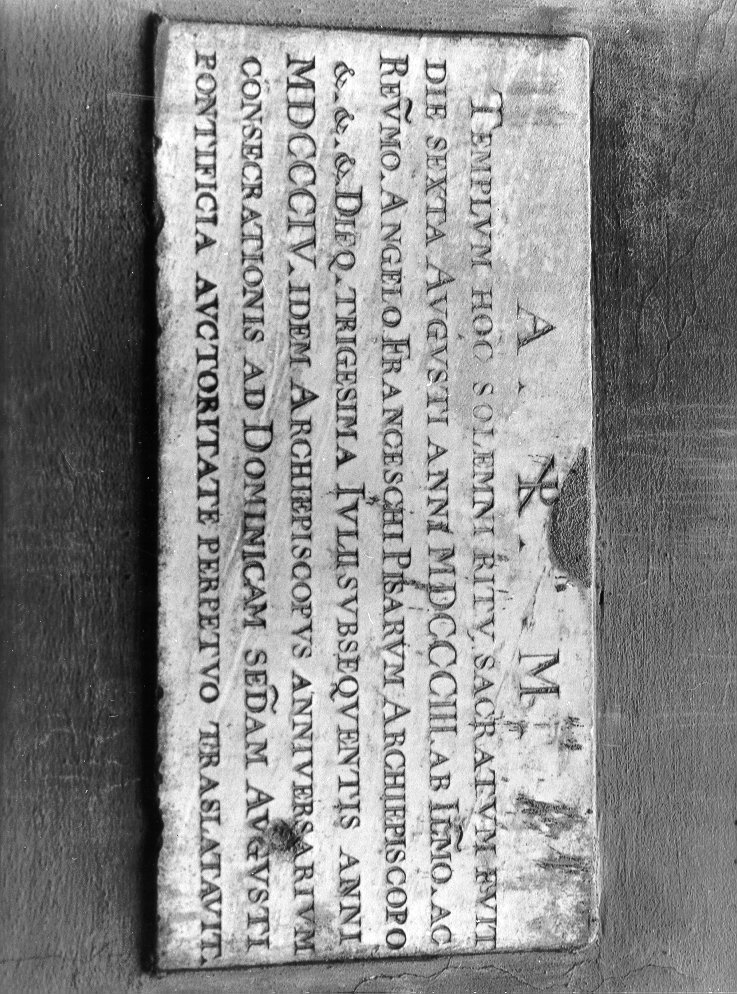 A . ☧ . M .
TEMPLVM HOC SOLEMNI RITV SACRATVM FVIT
DIE SEXTA AVGVSTI ANNI MDCCCIII. AB ILM̃O. AC
REṼMO. ANGELO FRANCESCHI PISARVM ARCHIEPISCOPO
&. &. & DIEQ. TRIGESIMA IVLII SVBSEQVENTIS ANNI
MDCCCIV. IDEM ARCHIEPISCOPVS ANNIVERSARIVM
CONSECRATIONIS AD DOMINICAM SED̃AM AVGVSTI
PONTIFICIA AVCTORITATE PERPETVO TRASLATAVIT.